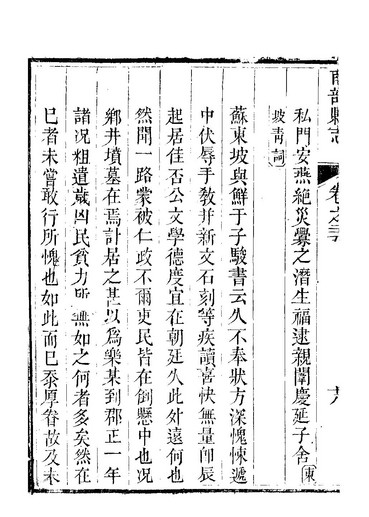 南部縣志
卷之三
十八
私門安燕絶災釁之潛生福逮親闈慶延子舍東
坡青詞
蘇東坡與鮮于子駿書云久不奉狀方深愧悚遞
中伏辱手教并新文石刻等疾讀喜快無量卽辰
起居佳否公文學德度宜在朝廷久此外遠何也
然聞一路蒙被仁政不爾吏民皆在倒懸中也况
鄉井墳墓在焉計居之甚以爲樂某到郡正一年
諸况粗遣歲凶民貧力所無如之何者多矣然在
巳者未嘗敢行所愧也如此而巳忝厚眷故及未